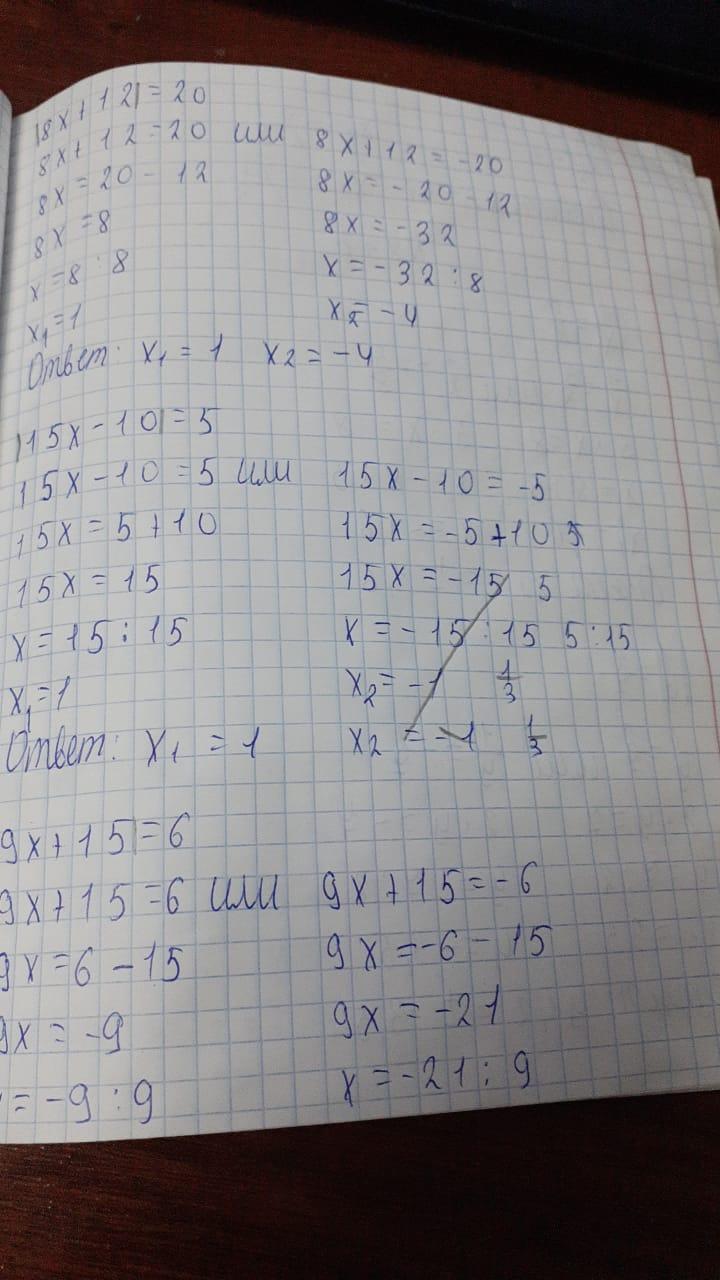 |8x+12|=20
8x+12=20 или 8x+12=-20
8x=20-12 8x=-20-12
8x=8 8x=-32
x=8:8 x=-32:8
x₁=1 x₂=-4
Ответ: x₁=1 x₂=-4
|15x-10|=5
15x-10=5 или 15x-10=-5
15x=5+10 15x=-5+10 5
15x=15 15x=-15 5
x=15:15 x=-15:15 5:15
x₁=1 x₂=-1 1/3
Ответ: x₁=1 x₂=-1 1/3
9x+15|=6
9x+15=6 или 9x+15=-6
9x=6-15 9x=-6-15
9x=-9 9x=-21
=-9:9 x=-21:9